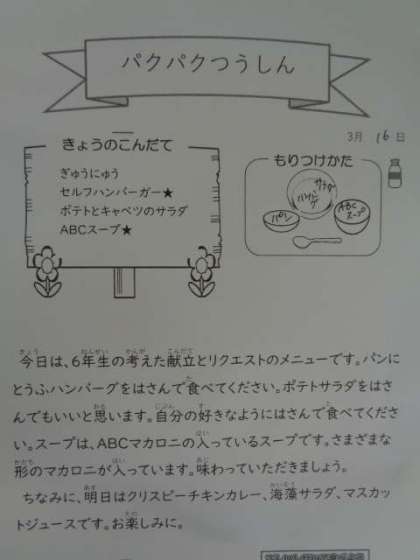 パクパクつうしん
3月 16日
きょうのこんだて
ぎゅうにゅう
セルフハンバーガー★
ポテトとキャベツのサラダ
ABCスープ★
もりつけかた
サラダ
ハンバーグ
パン
ABCスープ
今日は、6年生の考えた献立とリクエストのメニューです。パンに
とうふハンバーグをはさんで食べてください。ポテトサラダをはさ
んでもいいと思います。自分の好きなようにはさんで食べてくださ
い。スープは、ABCマカロニの入っているスープです。さまざまな
形のマカロニが入っています。味わっていただきましょう。
ちなみに、明日はクリスピーチキンカレー、海藻サラダ、マスカッ
トジュースです。お楽しみに。